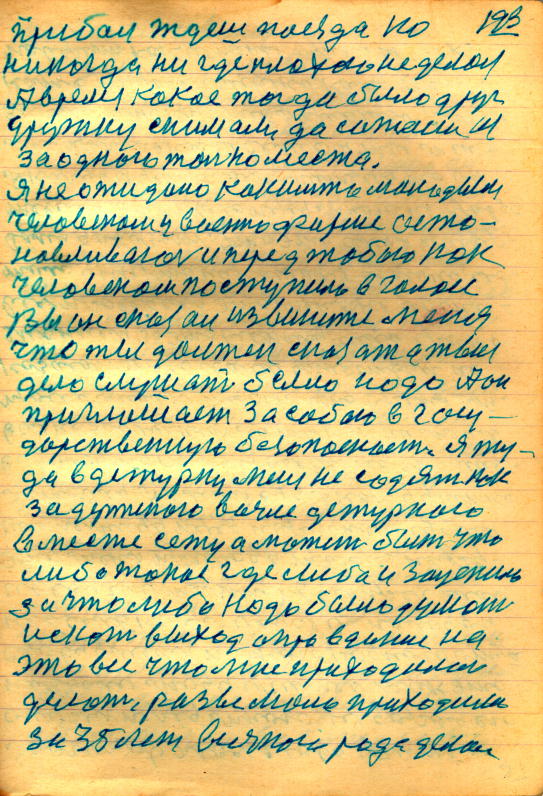 193
прибыл ждем поезда но
никогда ни где плохого не делол
А время какое тогда было друг
дружку снимали, да сажали и
за одного только места.
Я не ожидано каким то молодым
человеком у военто форме оста-
новливают и перед тобою как
человеком поступил в голове
вы он сказал извините меня
что ты должен сказать а твое
дело слушать было надо А он
приглашает за собою в госу-
дарственную безопасность. Я ту-
да в дежурку меня не содят как
задержоного в очие дежурного
вместе сежу а может быть что
либо такое где либа и зацепил
за что либо надо было думать
искать выход оправдание на
это все что мне приходилось
делат, разве мало приходилось
за 35 лет всякого рода делом